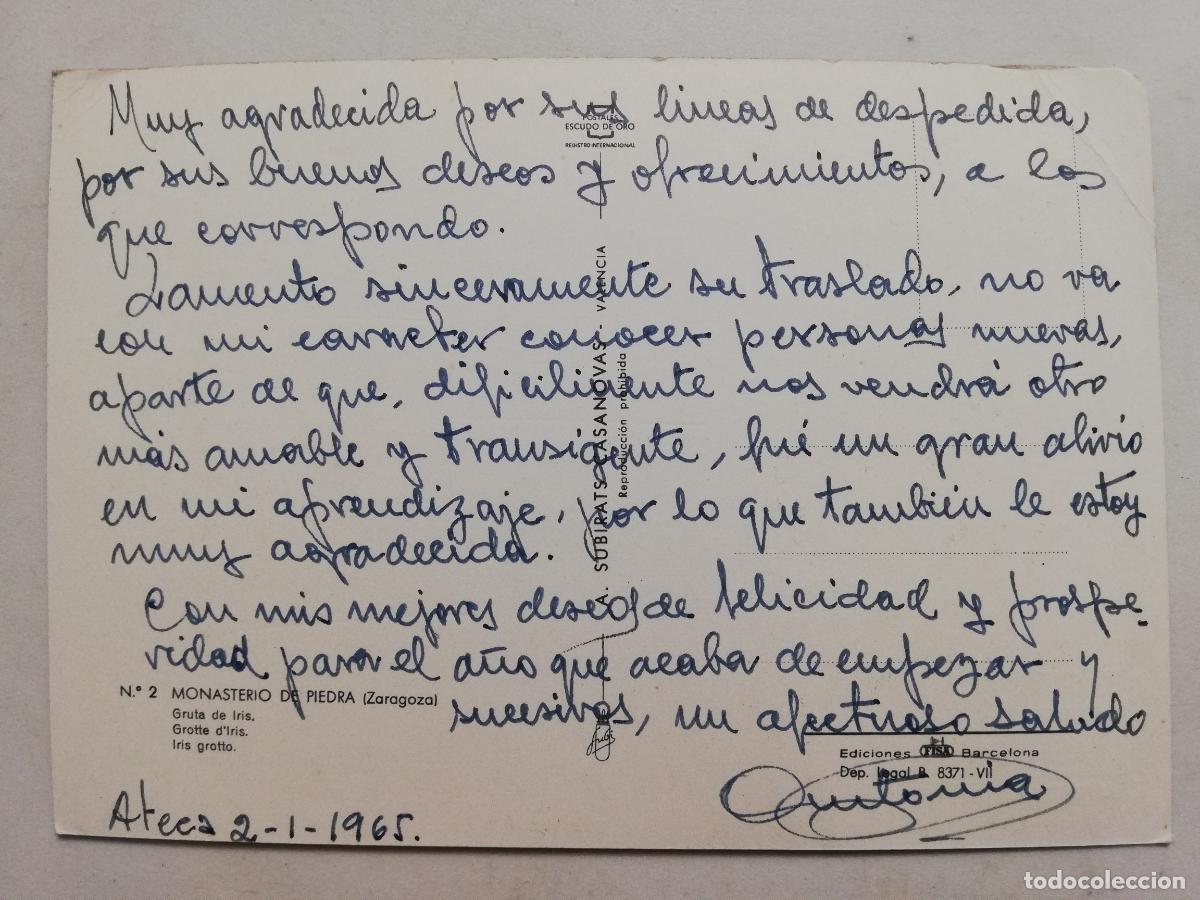 Muy agradecida por sus lineas de despedida,
por sus buenos deseos y ofrecimientos, a los
que correspondo.
Lamento sinceramente su traslado, no va
con mi caracter conocer personas nuevas,
aparte de que, dificilmente nos vendrá otro
más amable y transigente, fué un gran alivio
en mi aprendizaje, por lo que también le estoy
muy agradecida.
Con mis mejores deseos de felicidad y prospe-
ridad para el año que acaba de empezar y
sucesivos, un afectuoso saludo
Antonia
Ateca 2-1-1965.
POSTALES
ESCUDO DE ORO
REGISTRO INTERNACIONAL
A. SUBIRATS CASANOVAS - VALENCIA
Reproducción prohibida
N.º 2 MONASTERIO DE PIEDRA (Zaragoza)
Gruta de Iris.
Grotte d'Iris.
Iris grotto.
Ediciones FISA Barcelona
Dep. Legal B. 8371-VII
todocoleccion